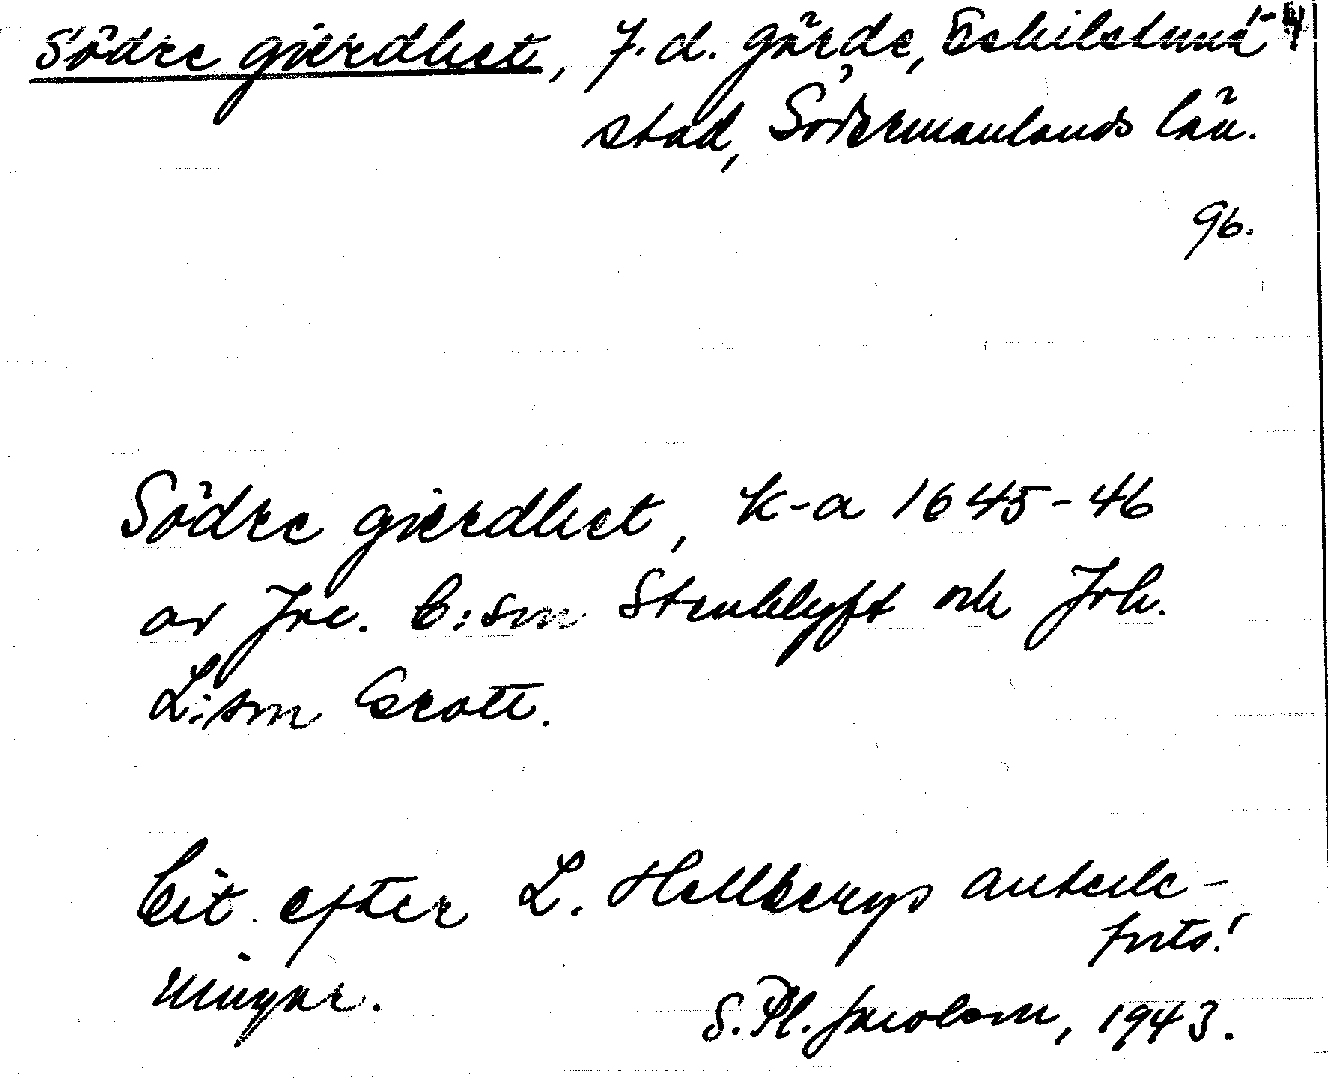 Södre gierdhet, f.d. gärde, Eskilstuna
stad, Södermanlands län.
96.
Södre gierdhet, k-a 1645-46
av Joc. C:sm Strublyft och Joh.
L:sm Grott.
Cit. efter L. Hellbergs anteck-
forts!
ningar.
S. Pl. Jacobsm, 1943.